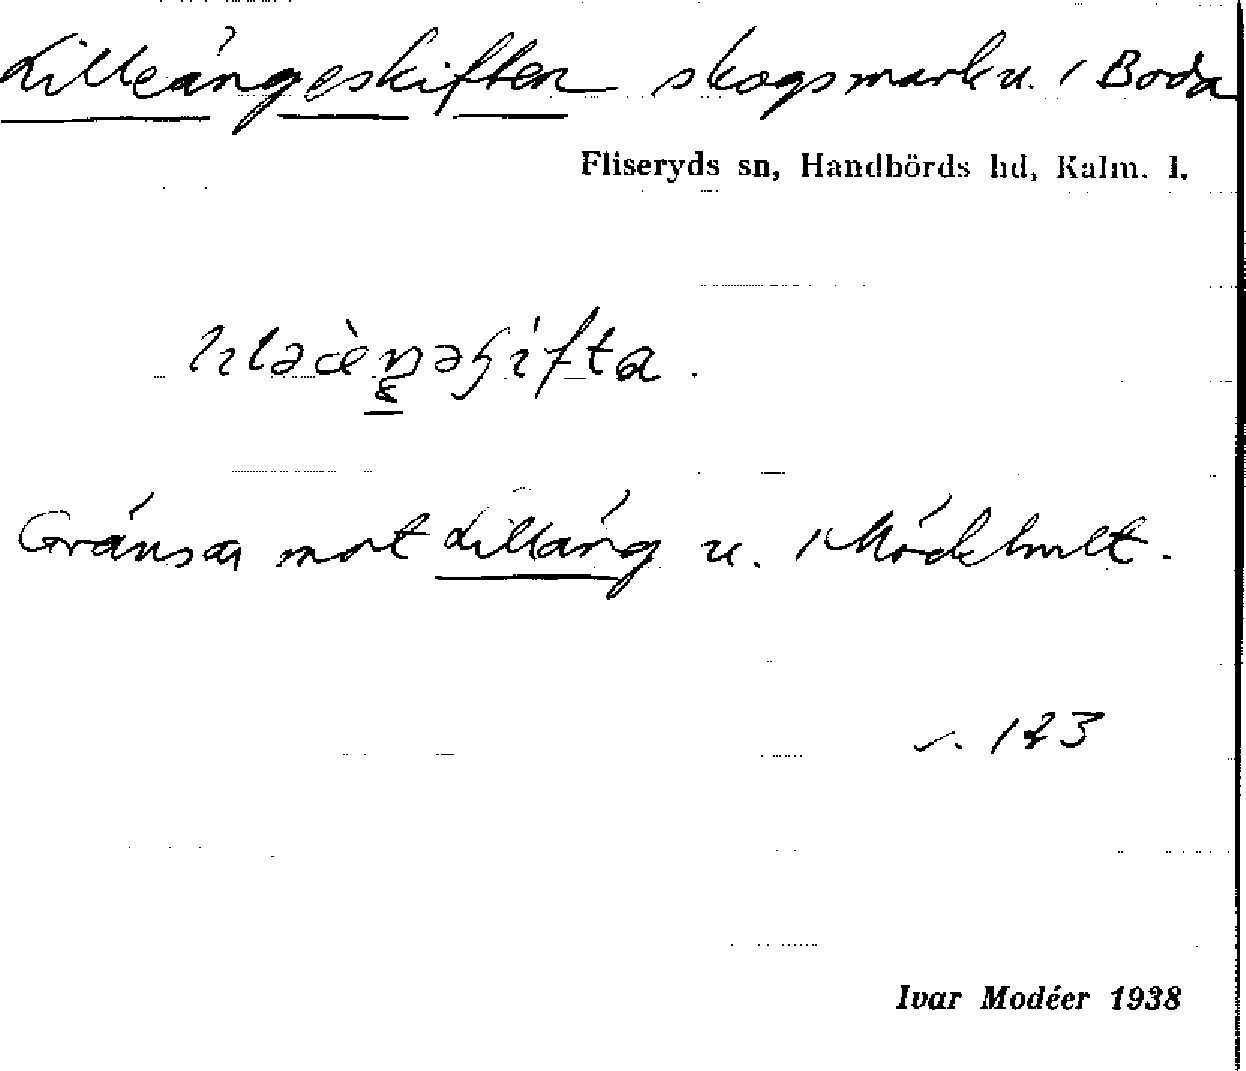 Lilleängeskiften skogsmark u. / Boda
Fliseryds sn, Handbörds hd, Kalm. l.
Gränsar mot Lilläng u. / Mödehult.
s. 173
Ivar Modéer 1938